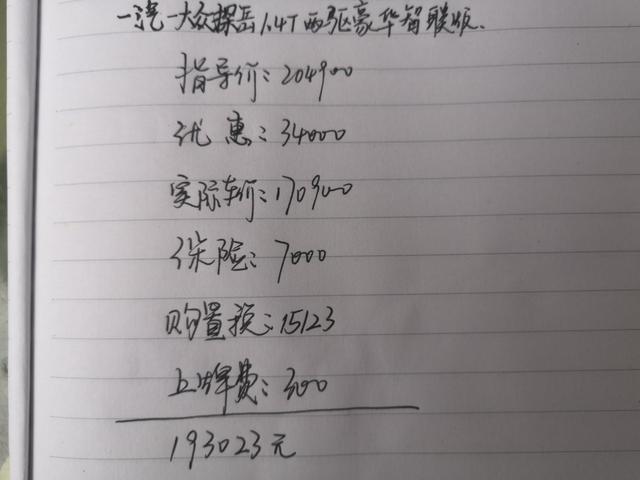 一汽一大众探岳1.4T两驱豪华智联版.
指导价：204900
优惠：34000
实际车价：170900
保险：7000
购置税：15123
上牌费：300
193023元